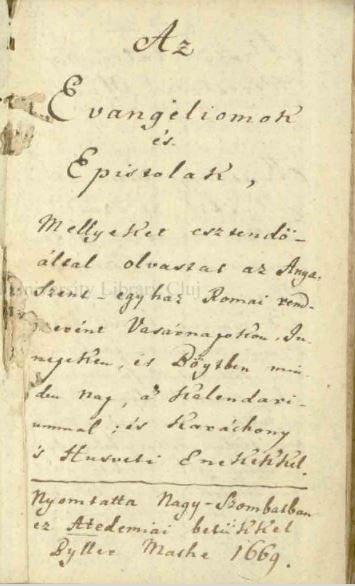 Az
Evangéliomok
és.
Epistolak,
Mellyeket esztendö-
által olvastat az Anya-
Szent-egyház Romai rend-
szerént Vasárnapokon, In-
nepeken, és Böytben min-
den nap, a' Kalendari-
ummal; és Karáchony
és Husveti Enekekkel.
Nyomtatta Nagy-Szombatban
ez Akedemiai betükkel
Byller Mathe 1669.
University Library Cluj